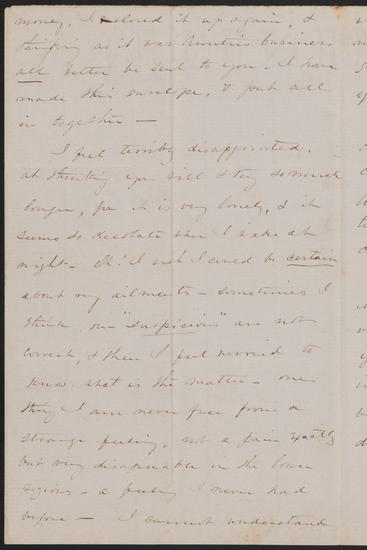 money, I closed it up again, &
thinking as it was Aunties business
all better be sent to you - I have
made this envelope, & put all
in together -
I feel terribly disappointed,
at thinking you will stay so much
longer, for it is very lonely, & it
seems so desolate when I wake at
night - Oh! I wish I could be certain
about my ailments - sometimes I
think, our "suspicions" are not
correct, & then I feel worried to
know what is the matter - one
thing I am never free from a
strange feeling, not a pain exactly
but very disagreeable in the lower
regions - a feeling I never had
before - I cannot understand